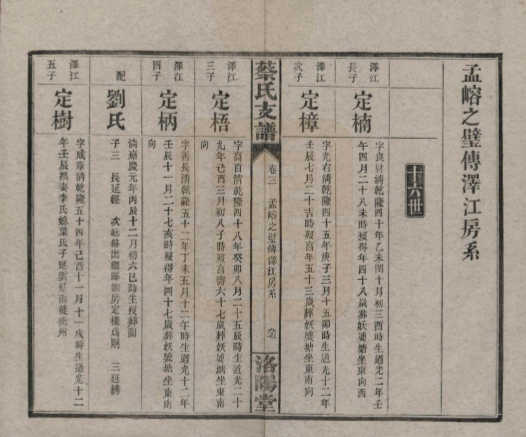 孟嵱之璧傳澤江房系
十六世
澤江
長子
定楠
字良材清乾隆四十年乙未閏十月初三酉時生道光二年壬
午四月二十八未時歿得年四十八歲葬妖婆塘坐東向西
澤江
次子
定樟
字光右清乾隆四十五年庚子三月十五卯時生道光十二年
壬辰七月二十吉時歿享年五十三歲葬妖婆塘坐東南向
蔡氏支譜
卷三
孟嵱之璧傳澤江房系
洛陽堂
澤江
三子
定梧
字高百清乾隆四十八年癸卯八月二十五辰時生道光二十
九年己酉三月初八子時歿享壽六十七歲葬妖婆塘坐東南
向
澤江
四子
定柄
字善長清乾隆五十二年丁未五月十二午時生道光十二年
壬辰十一月二十七亥時歿得年四十七歲葬妖婆塘坐東南
向
配
劉氏
清嘉慶元年丙辰十二月初六巳時生歿葬闕
子三 長延經 次延絡出繼 房定樣為嗣 三延綉
澤江
五子
定樹
字成章清乾隆五十四年己酉十一月十一戌時生道光十二
年壬辰歿妻李氏 葉氏子延 延南徒衡州